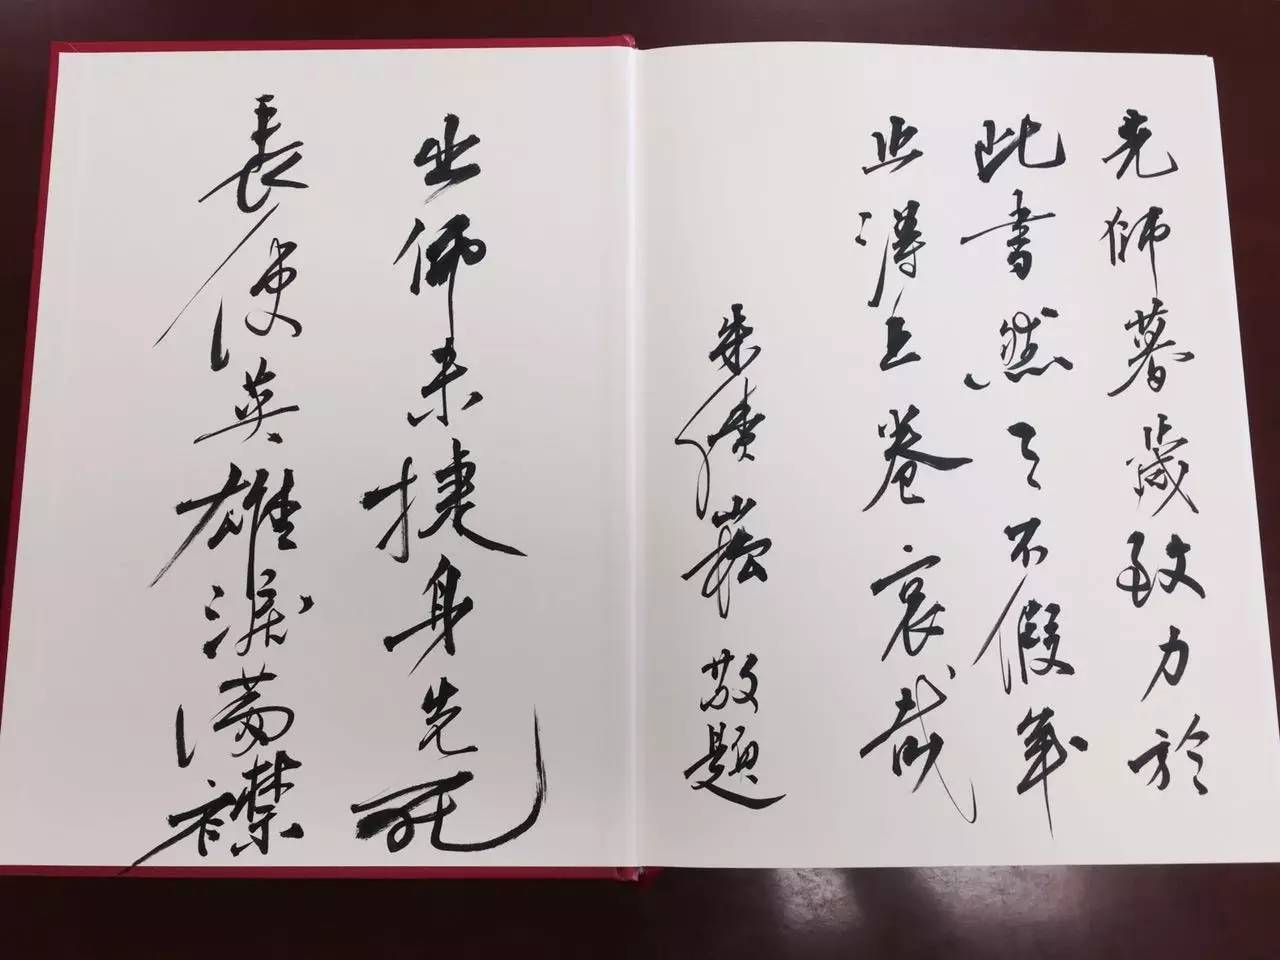 先師暮歲致力於
此書然天不假年
止得上卷哀哉
朱績崧敬題
出師未捷身先死
長使英雄淚滿襟